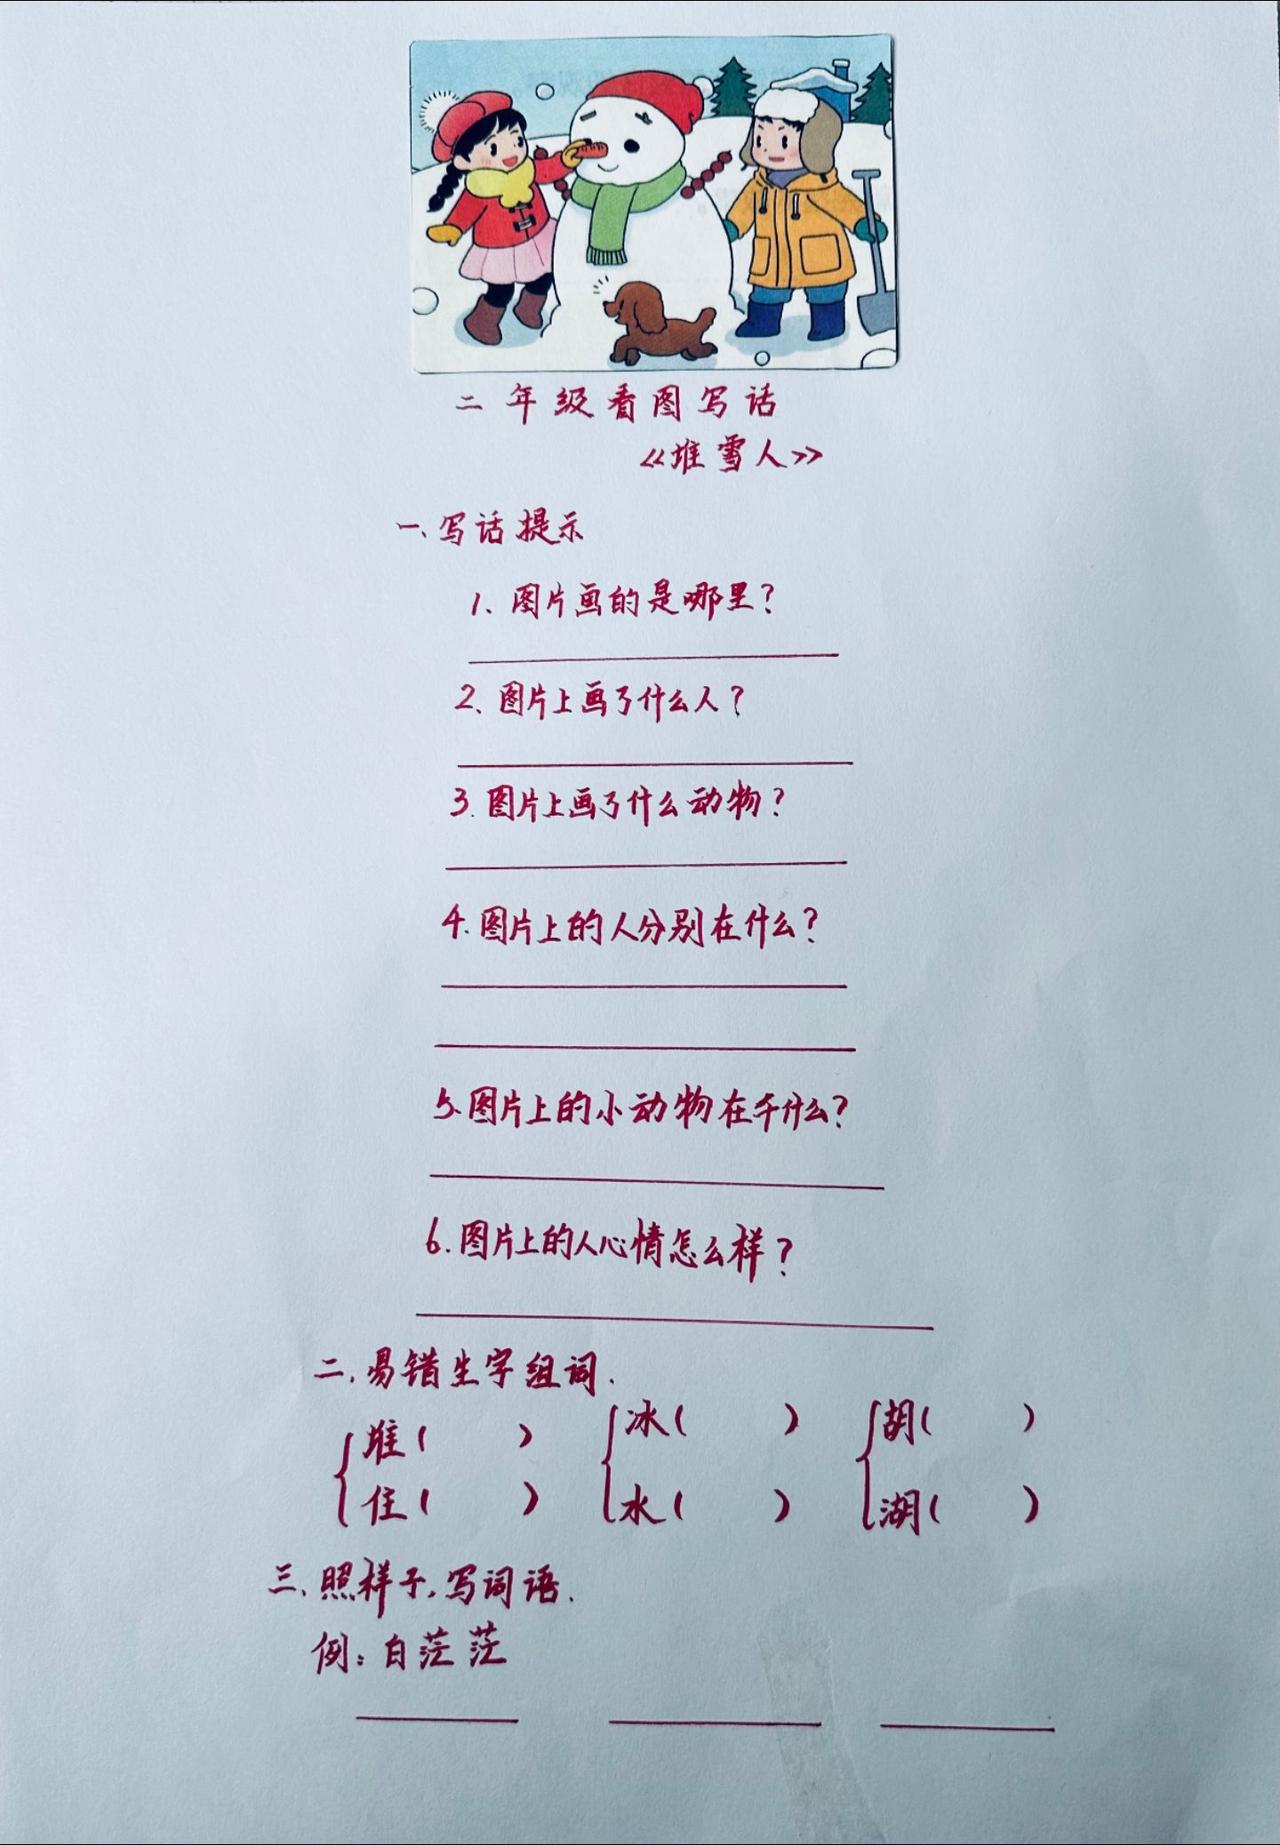 二年级看图写话
《堆雪人》
一、写话提示
1、图片画的是哪里？
2、图片上画了什么人？
3.图片上画了什么动物？
4.图片上的人分别在什么？
5.图片上的小动物在干什么？
6.图片上的人心情怎么样？
二.易错生字组词.
堆（ ） 冰（ ） 胡（ ）
住（ ） 水（ ） 湖（ ）
三、照样子，写词语.
例：白茫茫